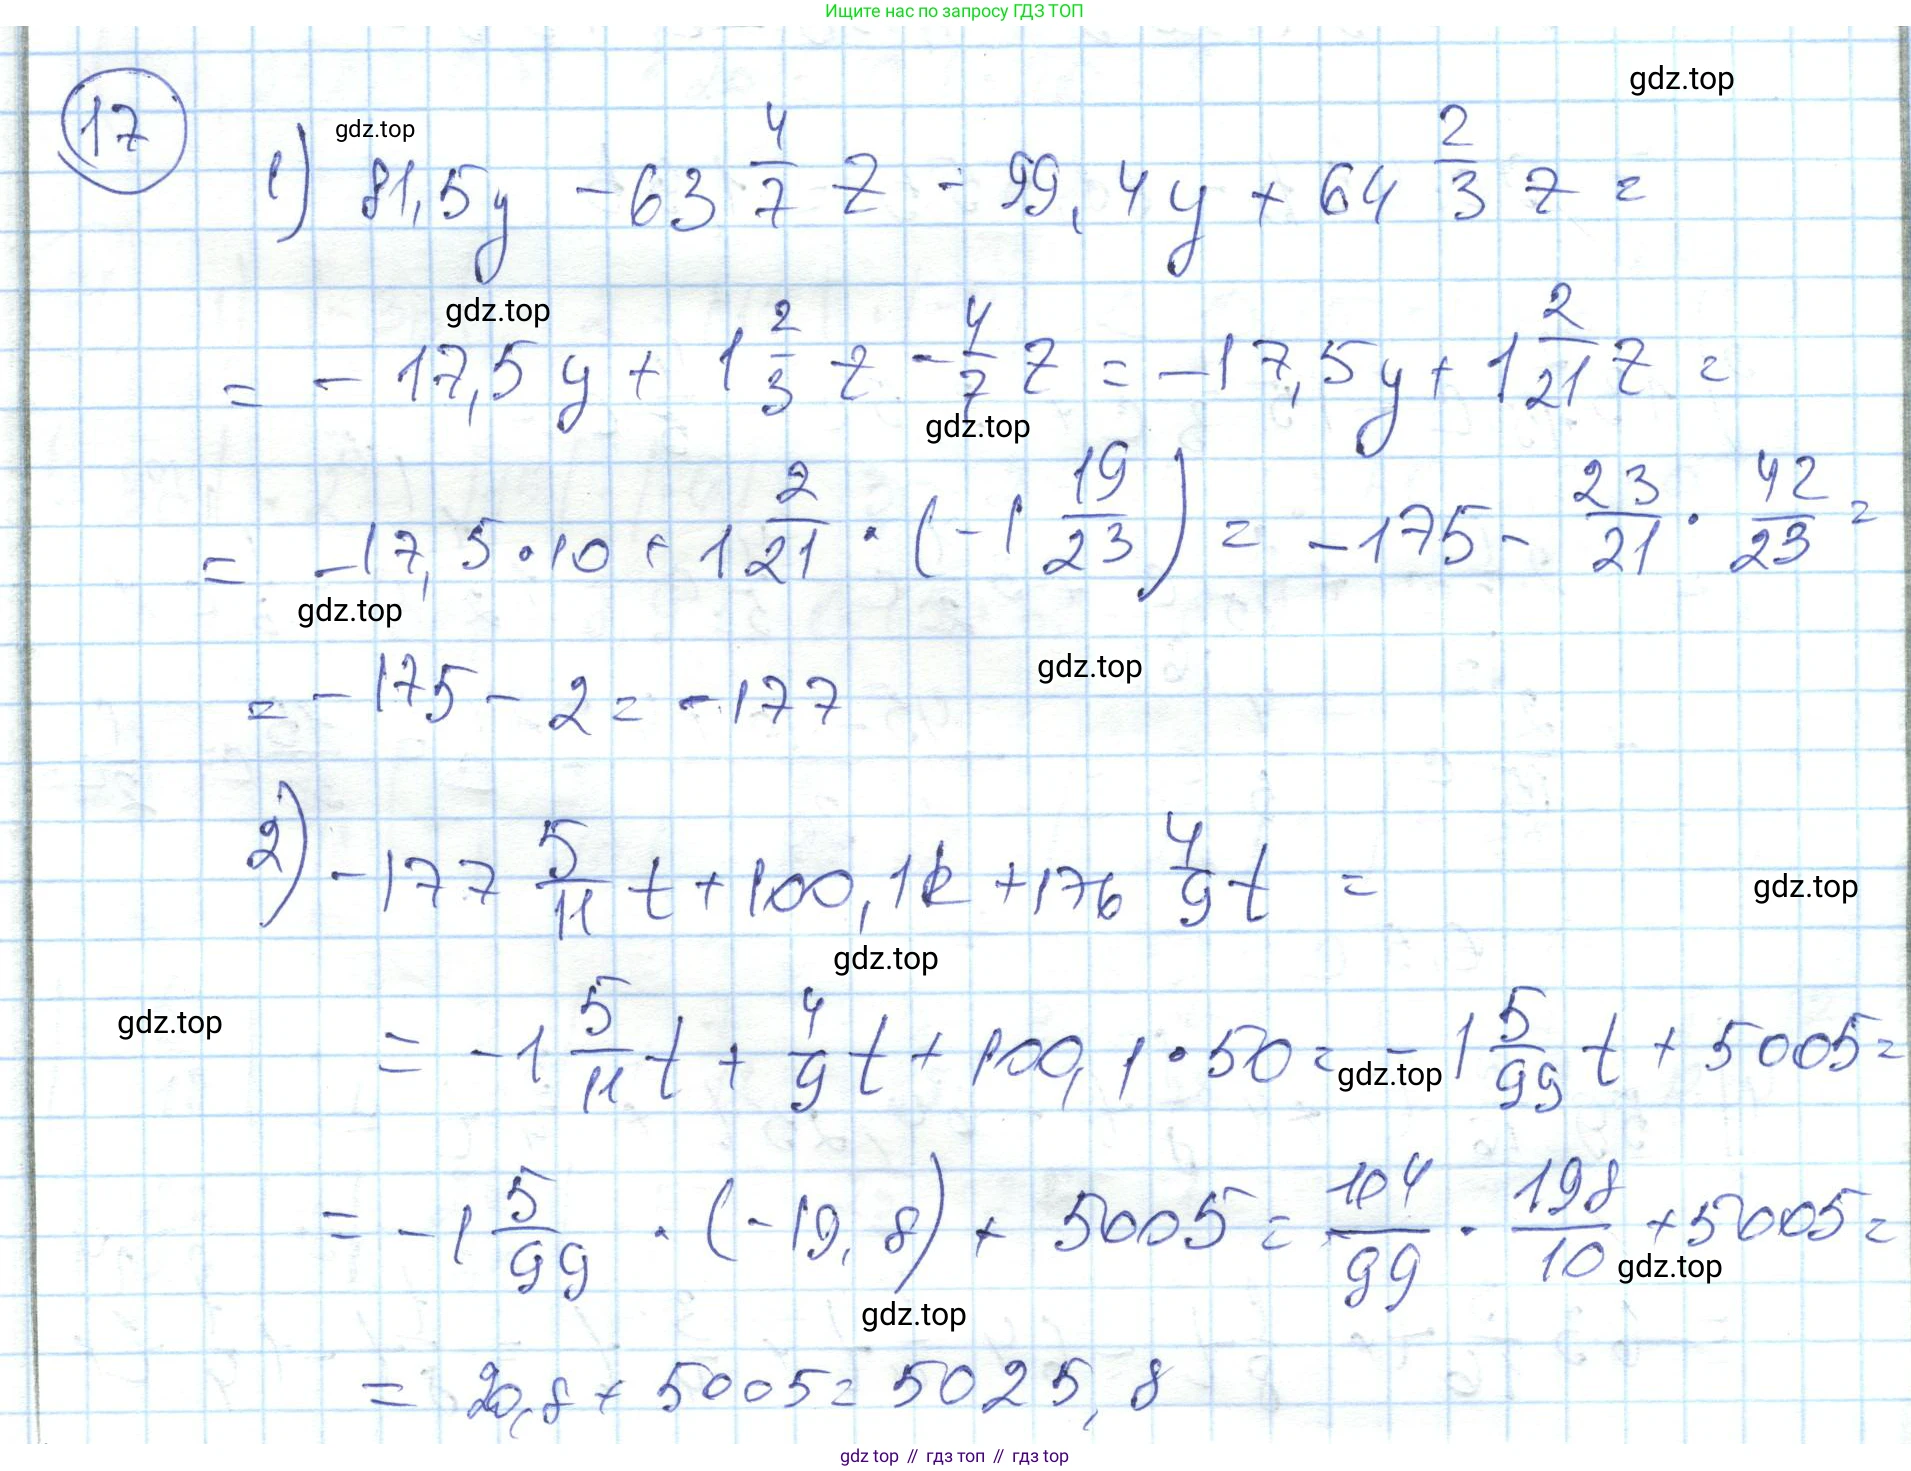 Ищите нас по запросу ГДЗ ТОП
gdz.top
17
gdz.top
1) 81,5y - 63 4/7 z - 99,4y + 64 2/3 z =
gdz.top
= - 17,5y + 1 2/3 z - 4/7 z = -17,5y + 1 2/21 z =
gdz.top
= -17,5 · 10 + 1 2/21 · (-1 19/23) = -175 - 23/21 · 42/23 =
gdz.top
gdz.top
= -175 - 2 = -177
2) -177 5/11 t + 100,1k + 176 4/9 t =
gdz.top
gdz.top
gdz.top
= -1 5/11 t + 4/9 t + 100,1 · 50 = -1 5/99 t + 5005 =
gdz.top
= -1 5/99 · (-19,8) + 5005 = 104/99 · 198/10 + 5005 =
gdz.top
gdz.top
= 20,8 + 5005 = 5025,8
gdz top // гдз топ // гдз top